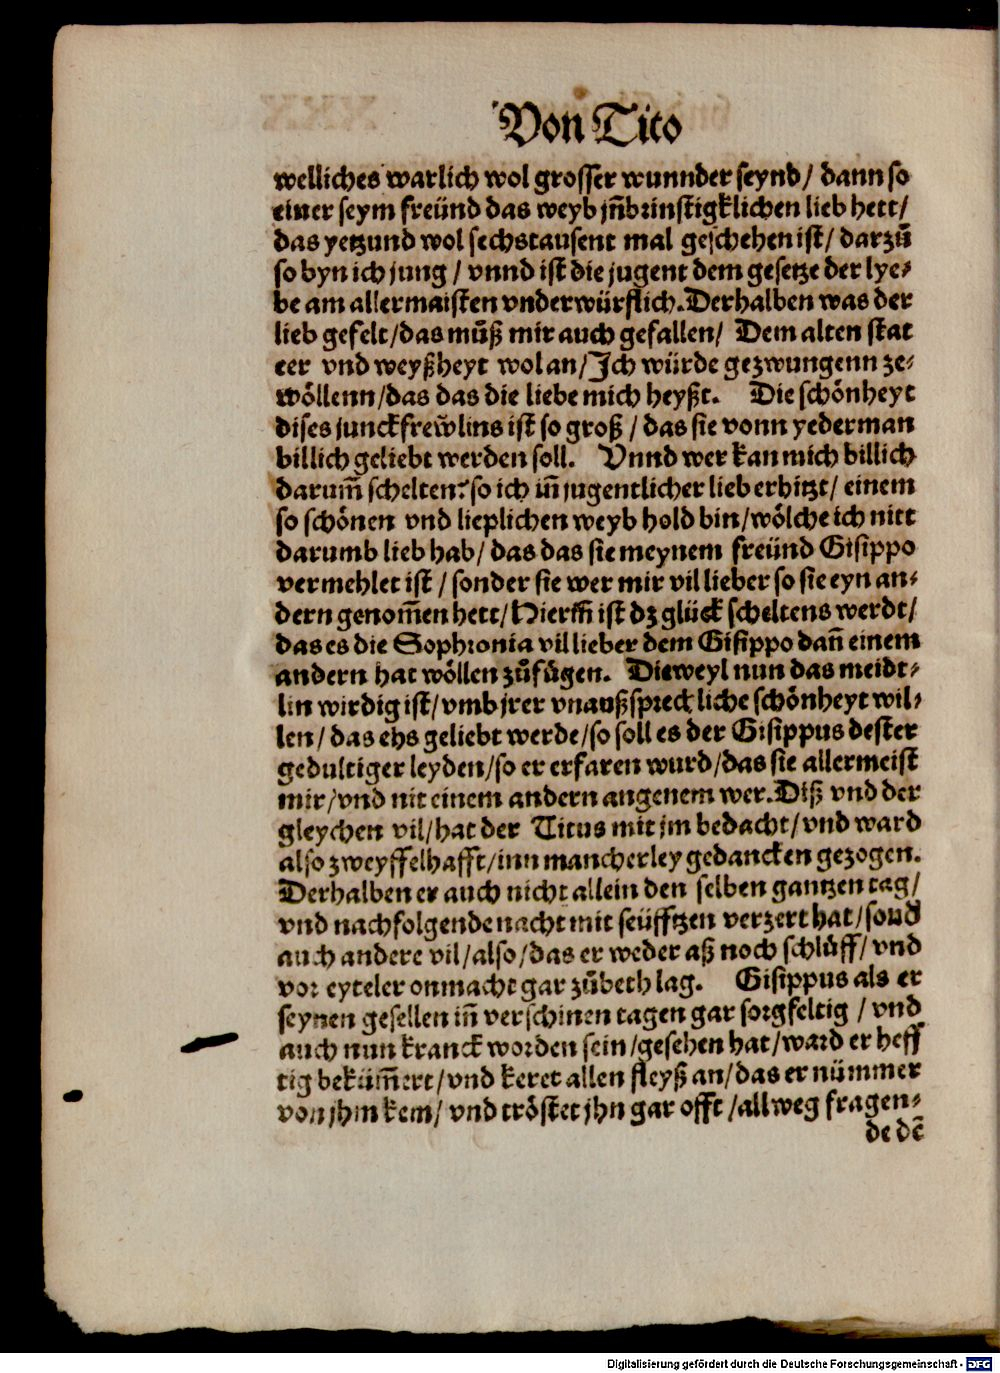 Von Tito
welliches warlich wol grosser wunnder seynd/ dann so
einer seym freünd das weyb jñbrinstigklichen lieb hett/
das yetzund wol sechstausent mal geschehen ist/ darzů
so byn ich jung / vnnd ist die jugent dem gesetze der lye-
be am allermaisten vnderwürfflich. Derhalben was der
lieb gefelt/das můß mir auch gefallen/ Dem alten stat
eer vnd weyßheyt wol an/ Ich würde gezwungenn ze-
wöllenn/das das die liebe mich heyßt. Die schönheyt
dises junckfrewlins ist so groß / das sie vonn yederman
billich geliebt werden soll. Vnnd wer kan mich billich
darum̃ schelten? so ich iñ jugentlicher lieb erhitzt/ einem
so schönen vnd lieplichen weyb hold bin/wölche ich nitt
darumb lieb hab/ das das sie meynem freünd Gisippo
vermehlet ist / sonder sie wer mir vil lieber so sie eyn an-
dern genom̃en hett/ Hierin̄ ist dz glück scheltens werdt/
das es die Sophronia vil lieber dem Gisippo dañ einem
andern hat wöllen zůfügen. Dieweyl nun das meidt-
lin wirdig ist/ vmb jrer vnaußsprecliche schönheyt wil-
len/ das ehs geliebt werde/so soll es der Gisippus dester
gedultiger leyden/so er erfaren wurd/das sie allermeist
mir/vnd nit einem andern angenem wer. Diß vnd der
gleychen vil/hat der Titus mit jm bedacht/vnd ward
also zweyffelhafft/inn mancherley gedancken gezogen.
Derhalben er auch nicht allein den selben gantzen tag/
vnd nachfolgende nacht mit seüfftzen verzert hat/sond
auch andere vil/also/das er weder aß noch schlůff/ vnd
vor eyteler onmacht gar zůbeth lag. Gisippus als er
seynen gesellen iñ verschinen tagen gar sorgfeltig / vnd
auch nun kranck worden sein/gesehen hat/ward er heff
tig beküm̃ert/vnd keret allen fleyß an/das er nümmer
von jhm kem/ vnd tröstet jhn gar offt /allweg fragen-
de dē
Digitalisierung gefördert durch die Deutsche Forschungsgemeinschaft - DFG